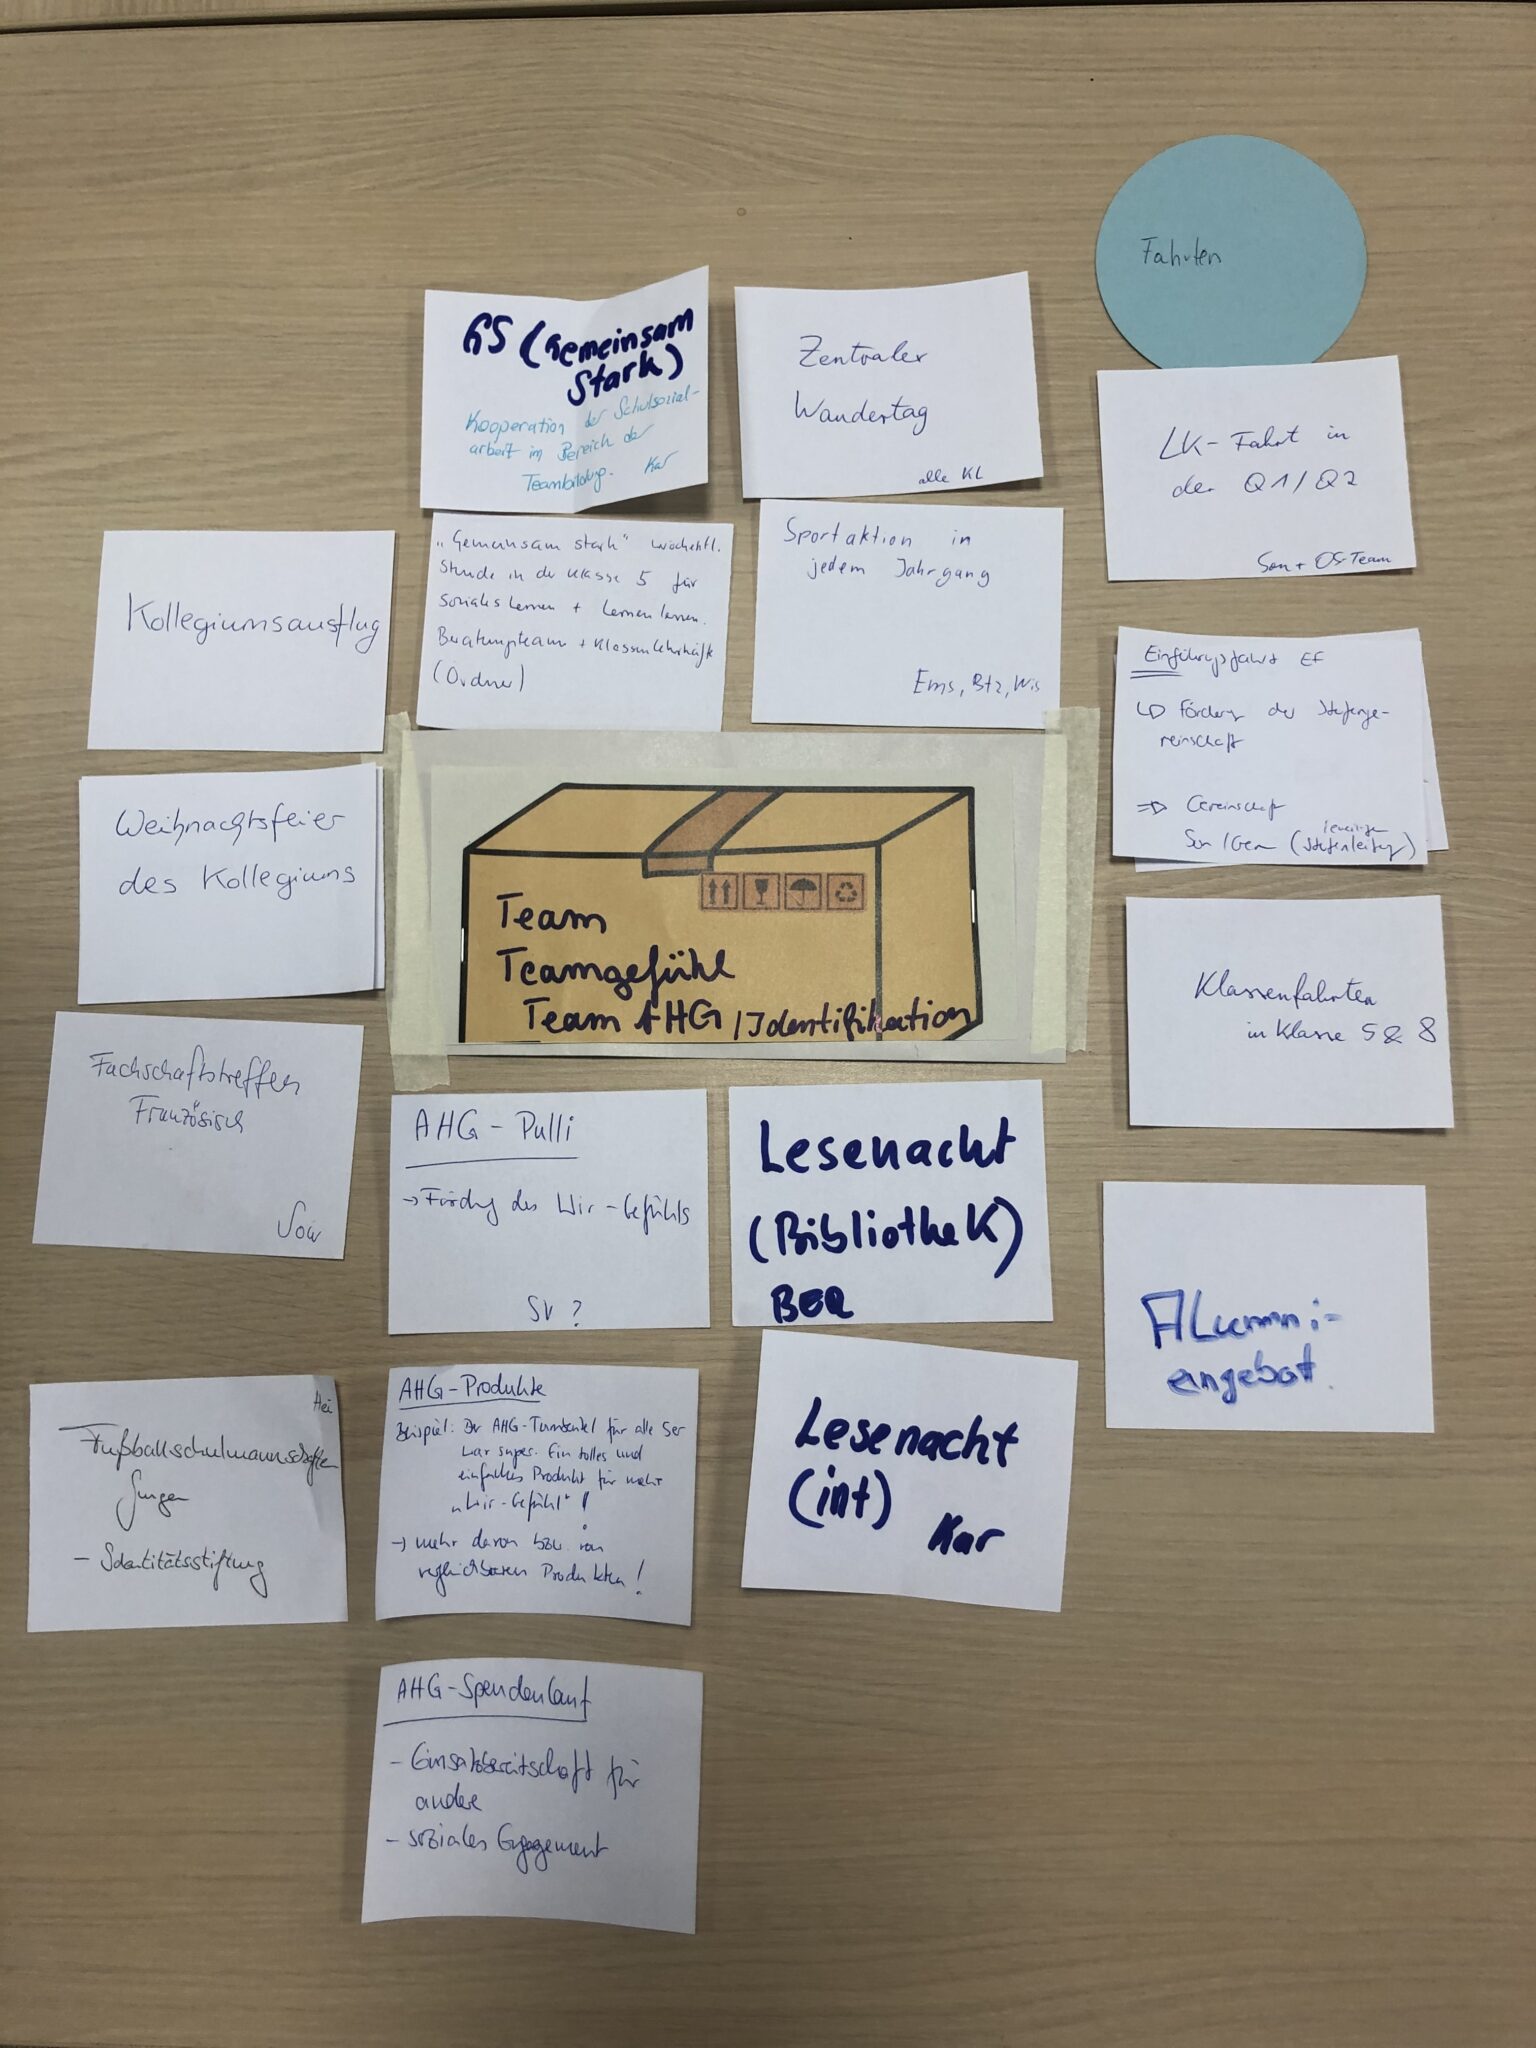 Fahrten
GS (Gemeinsam
Stark)
Kooperation der Schulsozial-
arbeit im Bereich der
Teambildung. Kar
Zentraler
Wandertag
alle KL
LK-Fahrt in
der Q1/Q2
Son + OS-Team
Kollegiumsausflug
"Gemeinsam stark" wöchentl.
Stunde in der Klasse 5 für
soziales Lernen + Lernen lernen.
Beratungsteam + Klassenlehrkräfte
(Ordner)
Sportaktion in
jedem Jahrgang
Ems, Btz, Wis
Einführungsfahrt EF
↳ Förderung der Stufenge-
meinschaft
⇒ Gemeinschaft
Son / Gem (jeweilige
Stufenleitung)
Weihnachtsfeier
des Kollegiums
Team
Teamgefühl
Team AHG / Identifikation
Klassenfahrten
in Klasse 5 & 8
Fachschaftstreffen
Französisch
AHG-Pulli
→ Förderung des Wir-Gefühls
SV ?
Lesenacht
(Bibliothek)
BER
Alumni-
angebot.
Hei
Fußballschulmannschaften
Jungen
- Identitätsstiftung
AHG-Produkte
Beispiel: Der AHG-Turnbeutel für alle 5er
war super. Ein tolles und
einfaches Produkt für mehr
"Wir-Gefühl"!
→ mehr davon bzw. von
vergleichbaren Produkten!
Lesenacht
(int)
Kar
AHG-Spendenlauf
- Einsatzbereitschaft für
andere
- soziales Engagement